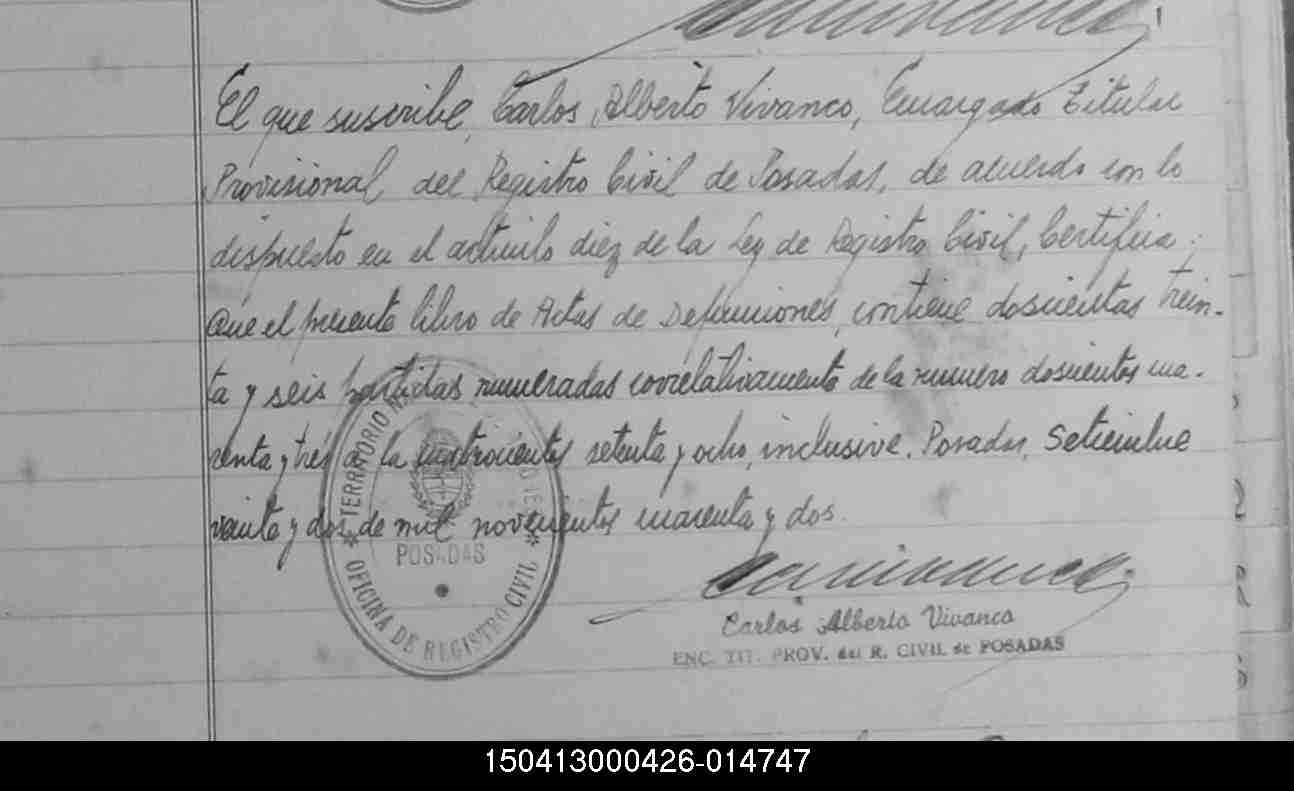 El que suscribe, Carlos Alberto Vivanco, Encargado Titular
Provisional, del Registro Civil de Posadas, de acuerdo con lo
dispuesto en el artículo diez de la Ley de Registro Civil, Certifica:
Que el presente libro de Actas de Defunciones, contiene doscientas trein-
ta y seis partidas numeradas correlativamente de la numero doscientos cua-
renta y tres a la cuatrocientos setenta y ocho, inclusive. Posadas, Setiembre
veinte y dos de mil novecientos cuarenta y dos.
TERRITORIO
POSADAS
OFICINA DE REGISTRO CIVIL
Carlos Alberto Vivanco
ENC. TIT. PROV. del R. CIVIL de POSADAS
150413000426-014747